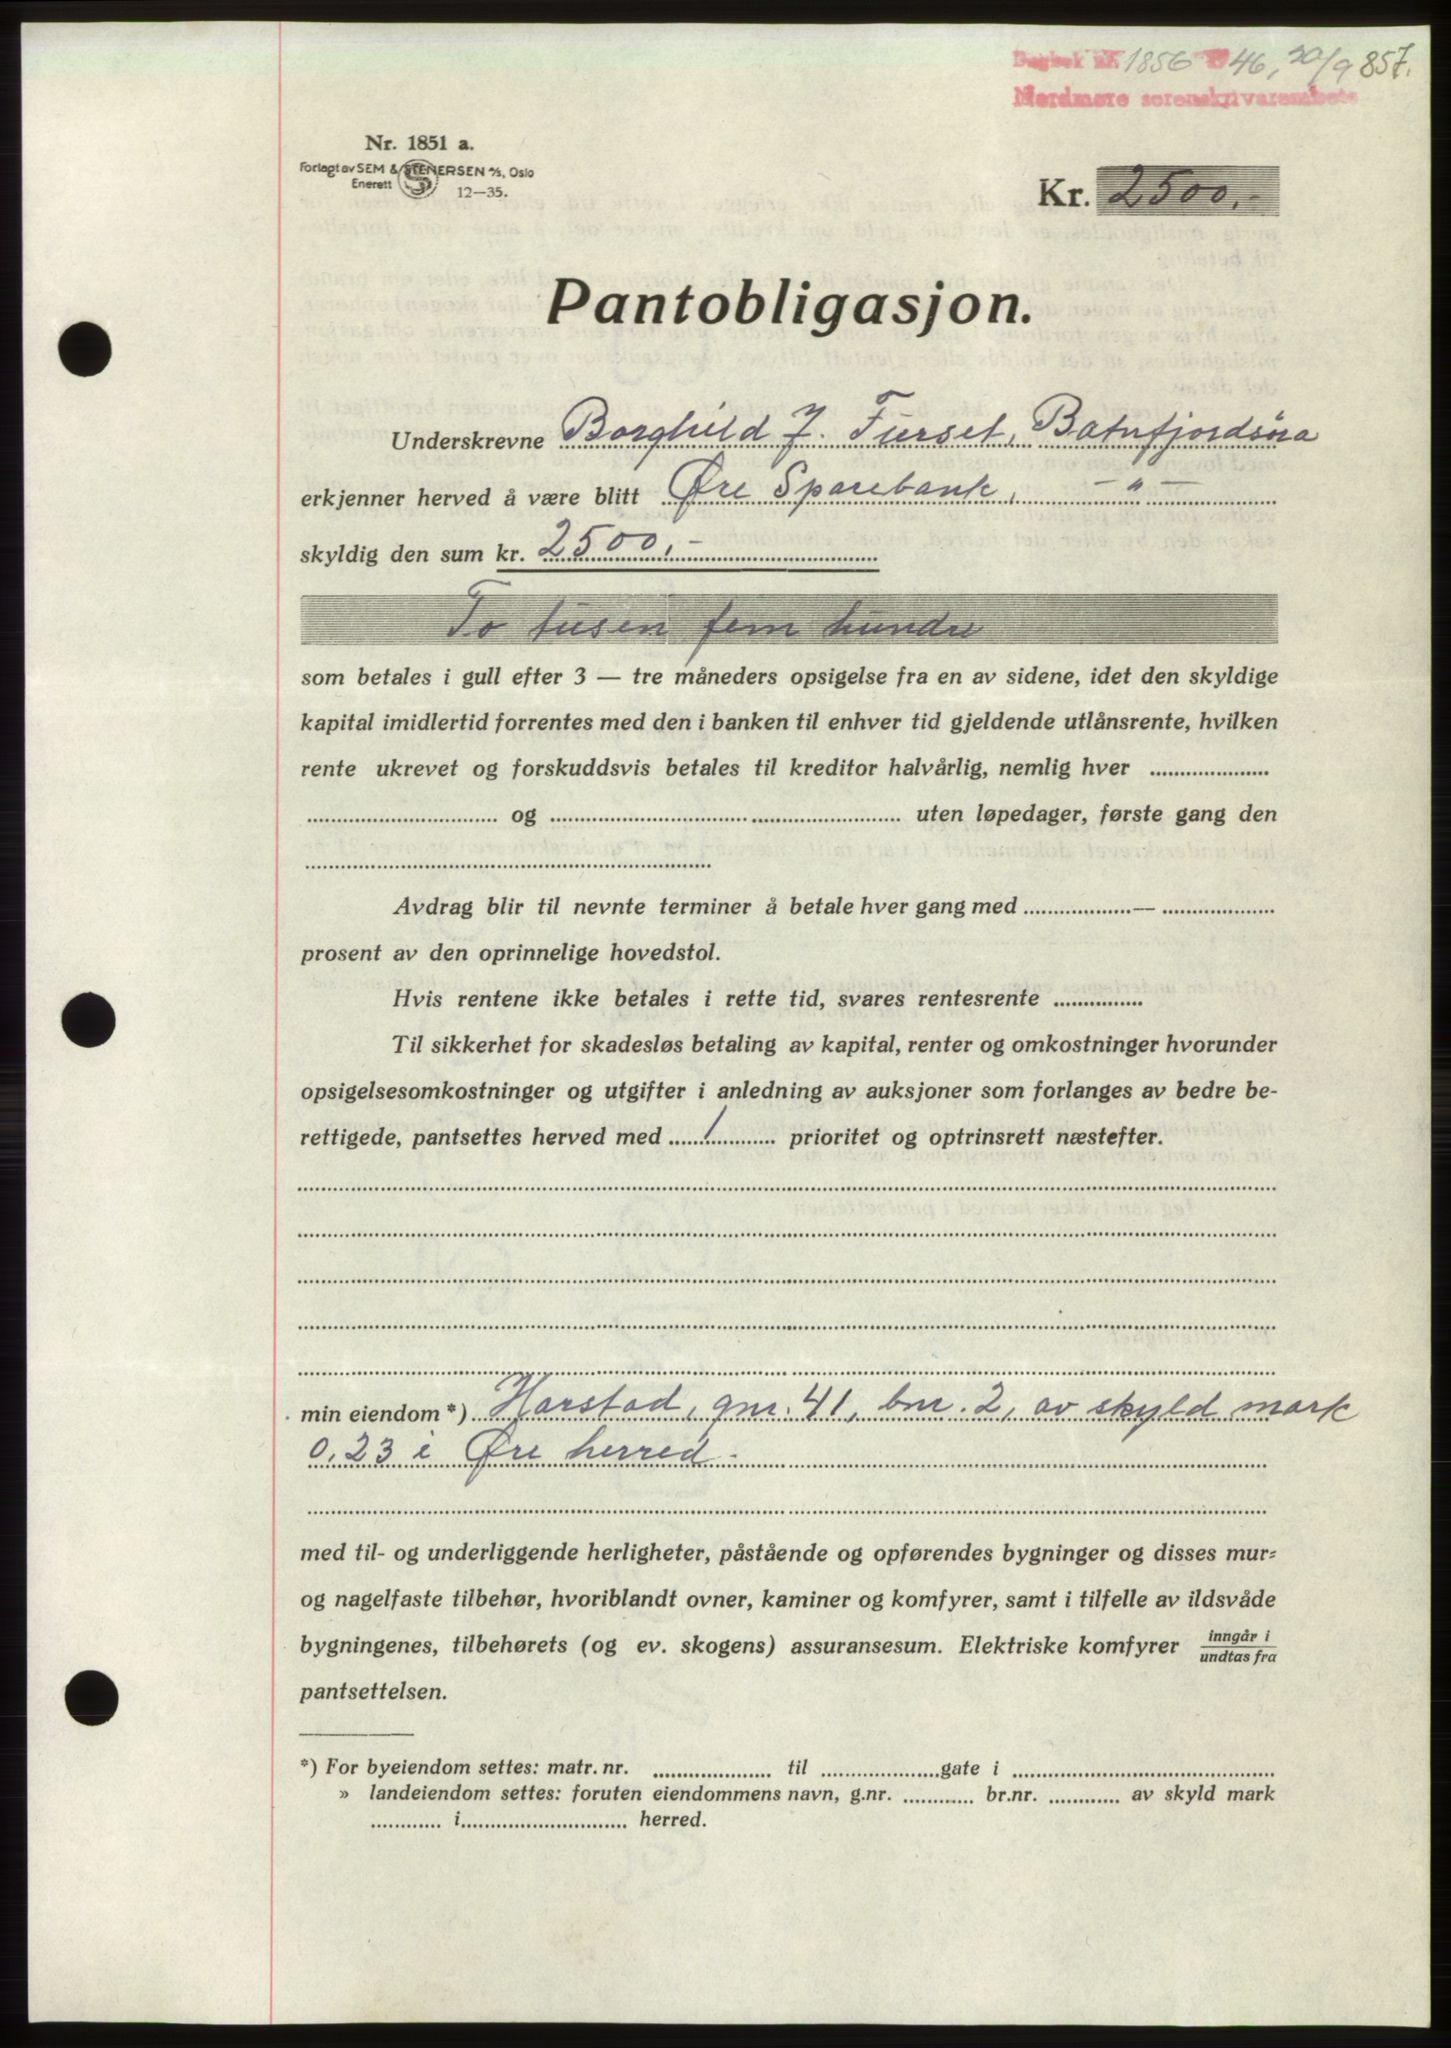 Dagbok nr. 1856 1946, 20/9 857.
Nordmøre sorenskriverembete
Nr. 1851 a.
Forlagt av SEM & STENERSEN A/S, Oslo
Enerett
12—35.
Kr. 2500,-
Pantobligasjon.
Underskrevne Borghild J. Furset, Batnfjordsøra
erkjenner herved å være blitt Øre Sparebank, — " —
skyldig den sum kr. 2500,-
To tusen fem hundre
som betales i gull efter 3 — tre måneders opsigelse fra en av sidene, idet den skyldige
kapital imidlertid forrentes med den i banken til enhver tid gjeldende utlånsrente, hvilken
rente ukrevet og forskuddsvis betales til kreditor halvårlig, nemlig hver ....................
................................ og ............................................................ uten løpedager, første gang den
....................................................................
Avdrag blir til nevnte terminer å betale hver gang med ..................— ...................
prosent av den oprinnelige hovedstol.
Hvis rentene ikke betales i rette tid, svares rentesrente ...............
Til sikkerhet for skadesløs betaling av kapital, renter og omkostninger hvorunder
opsigelsesomkostninger og utgifter i anledning av auksjoner som forlanges av bedre be-
rettigede, pantsettes herved med ...... 1 ........... prioritet og optrinsrett næstefter.
min eiendom *) Harstad, gnr. 41, bnr. 2, av skyld mark
0,23 i Øre herred.
med til- og underliggende herligheter, påstående og opførendes bygninger og disses mur-
og nagelfaste tilbehør, hvoriblandt ovner, kaminer og komfyrer, samt i tilfelle av ildsvåde
bygningenes, tilbehørets (og ev. skogens) assuransesum. Elektriske komfyrer inngår i / undtas fra
pantsettelsen.
*) For byeiendom settes: matr. nr. .................... til ....................gate i ............................................
» landeiendom settes: foruten eiendommens navn, g.nr. ............ br.nr. ............ av skyld mark
............ i............................ herred.